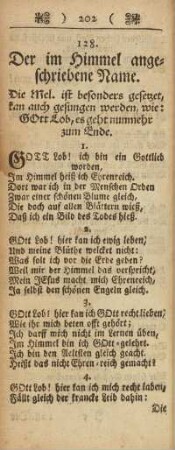 ) 202 (
128.
Der im Himmel ange-
schriebene Name.
Die Mel. ist besonders gesetzet,
kan auch gesungen werden, wie:
GOtt Lob, es geht nunmehr
zum Ende.
1.
GOTT Lob! ich bin ein Gottlich
worden,
Im Himmel heiß ich Ehrenreich,
Dort war ich in der Menschen Orden
Zwar einer schönen Blume gleich,
Die doch auf allen Blättern wieß,
Daß ich ein Bild des Todes hieß.
2.
GOtt Lob! hier kan ich ewig leben,
Und meine Blüthe welcket nicht:
Was solt ich vor die Erde geben?
Weil mir der Himmel das verspricht,
Mein JEsus macht mich Ehrenreich,
Ja selbst den schönen Engeln gleich.
3.
GOtt Lob! hier kan ich GOtt recht lieben,
Wie ihr mich beten offt gehört;
Ich darff mich nicht im Lernen üben,
Im Himmel bin ich GOtt-gelehrt.
Ich bin den Aeltsten gleich geacht.
Heißt das nicht Ehren-reich gemacht!
4.
GOtt Lob! hier kan ich mich recht laben,
Fällt gleich der krancke Leib dahin:
Die